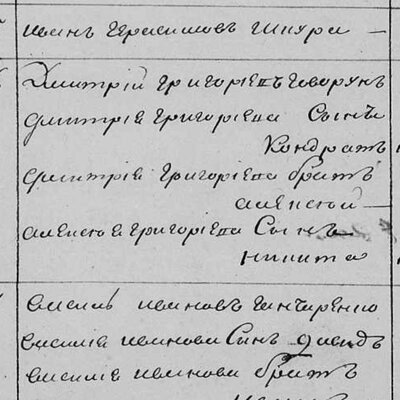 иванъ Герасимовъ Шкура —
Дмитрій Григоріевъ Говорунъ
дмитрія Григоріева Сынъ
Кондратъ
дмитрія Григоріева братъ
алексей —
алексея Григоріева Сынъ
никита
василь ивановъ Гончаренко
василія иванова Синъ давидъ
василія иванова братъ